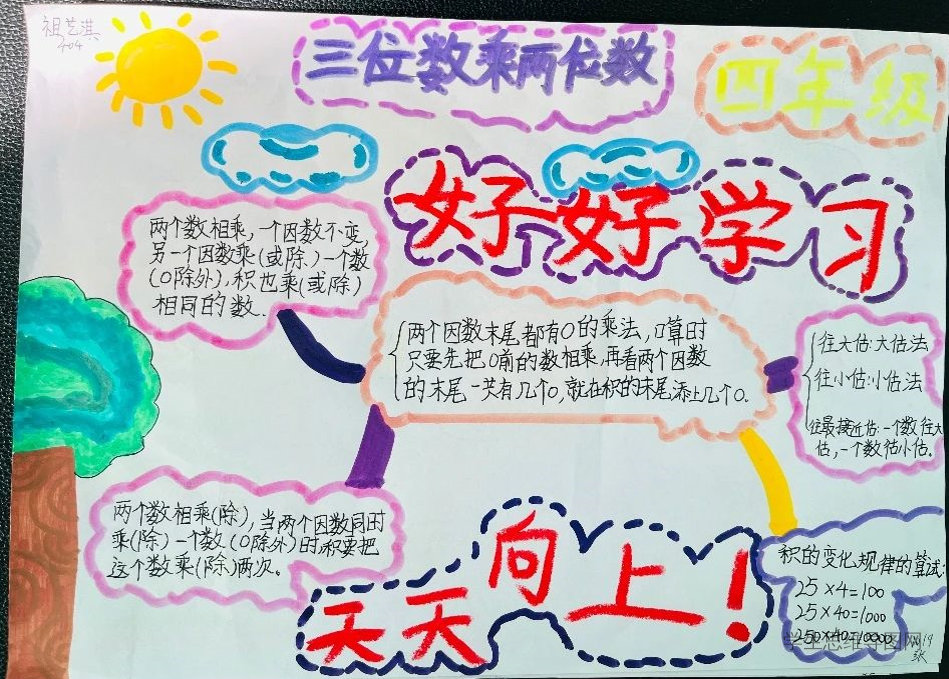 祖艺淇
404
三位数乘两位数
四年级
好好学习
两个数相乘,一个因数不变,
另一个因数乘(或除)一个数
(0除外),积也乘(或除)
相同的数.
两个因数末尾都有0的乘法,口算时
只要先把0前的数相乘,再看两个因数
的末尾一共有几个0,就在积的末尾添上几个0.
往大估:大估法
往小估:小估法
往最接近估:一个数往大
估,一个数估小估.
两个数相乘(除),当两个因数同时
乘(除)一个数(0除外)时,积要把
这个数乘(除)两次。
天天向上!
积的变化规律的算试:
25×4=100
25×40=1000
250×40=10000
学生思维导图网